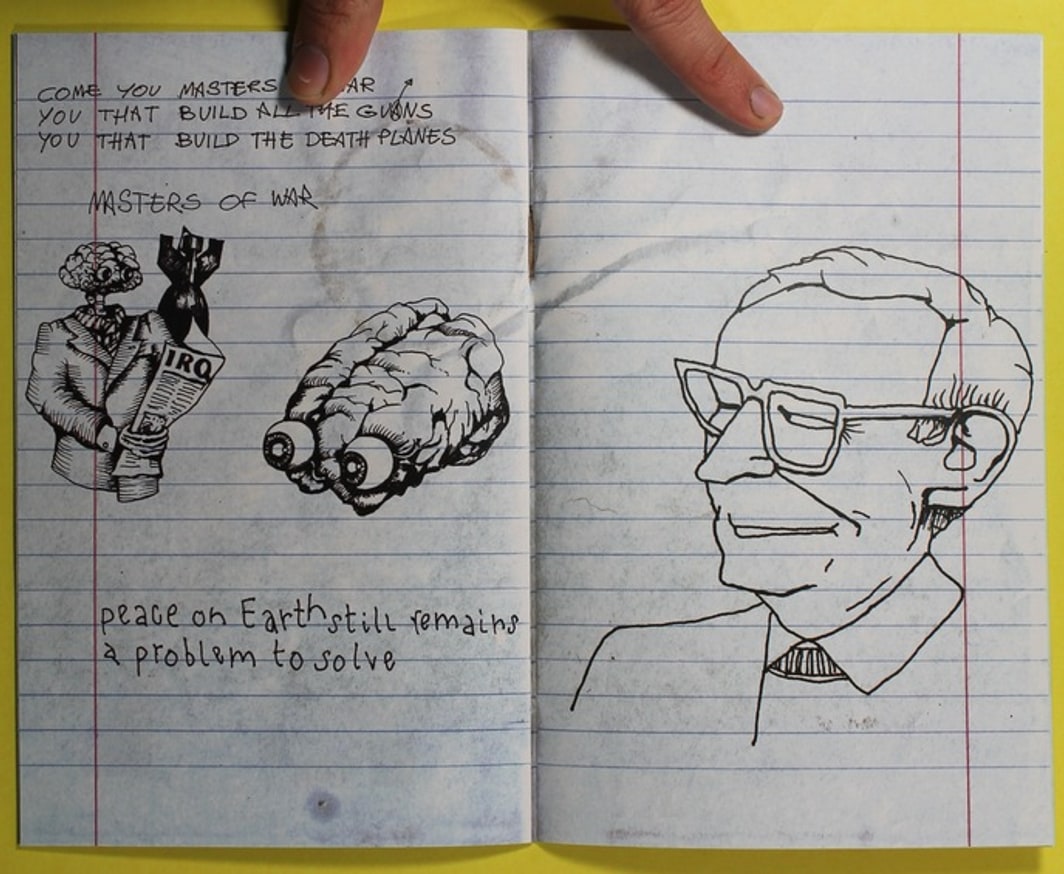 COME YOU MASTERS AR
YOU THAT BUILD ALL THE GUNS
YOU THAT BUILD THE DEATH PLANES
MASTERS OF WAR
IRQ
peace on Earth still remains
a problem to solve